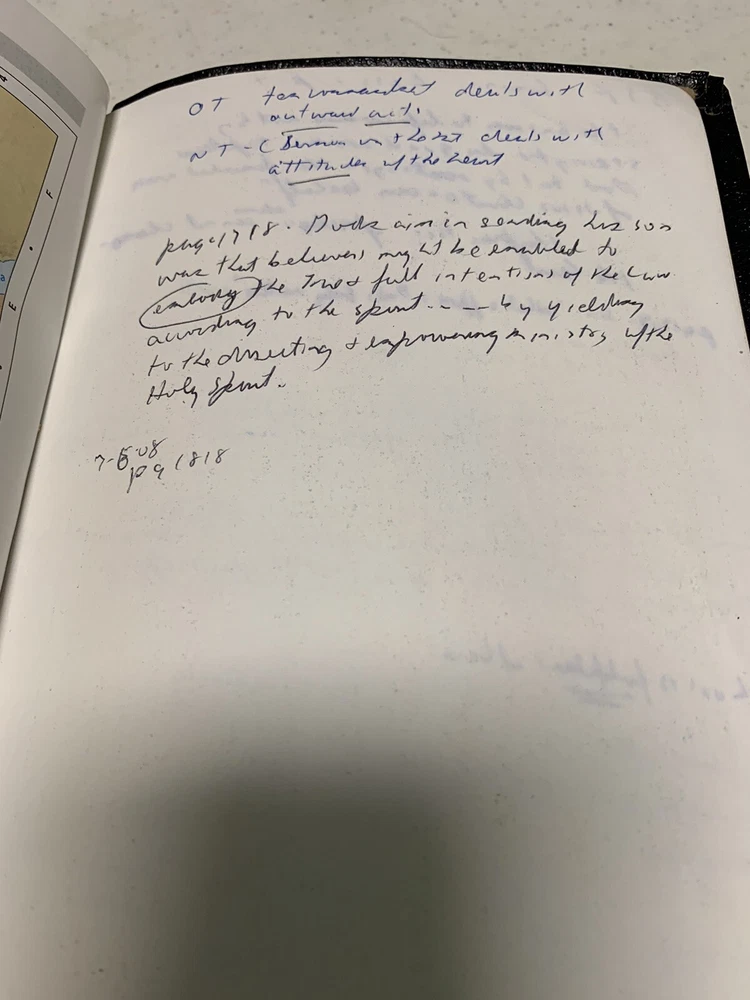 OT ten commandment deals with
outward acts.
NT - (Sermon on the Mt deals with
attitudes of the heart
page 1718. God's aim in sending his son
was that believers might be enabled to
embody the true & full intentions of the Law
according to the spirit - - - - by yielding
to the directing & empowering ministry of the
Holy Spirit.
7-6-08
pg 1818
F
E